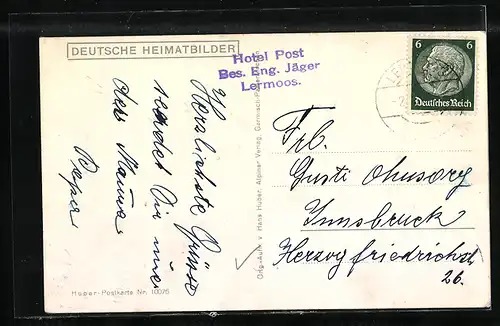 DEUTSCHE HEIMATBILDER
Hotel Post
Bes. Eng. Jäger
Lermoos.
6 6
Deutsches Reich
Herzlichste Grüsse
sendet Dir
Mama
Papa
Frl.
Gusti
Innsbruck
Herzog friedrichstr
26.
Orig.-Aufn. v. Hans Huber, Alpiner Verlag, Garmisch-Partenkirchen
Huber-Postkarte Nr. 10076